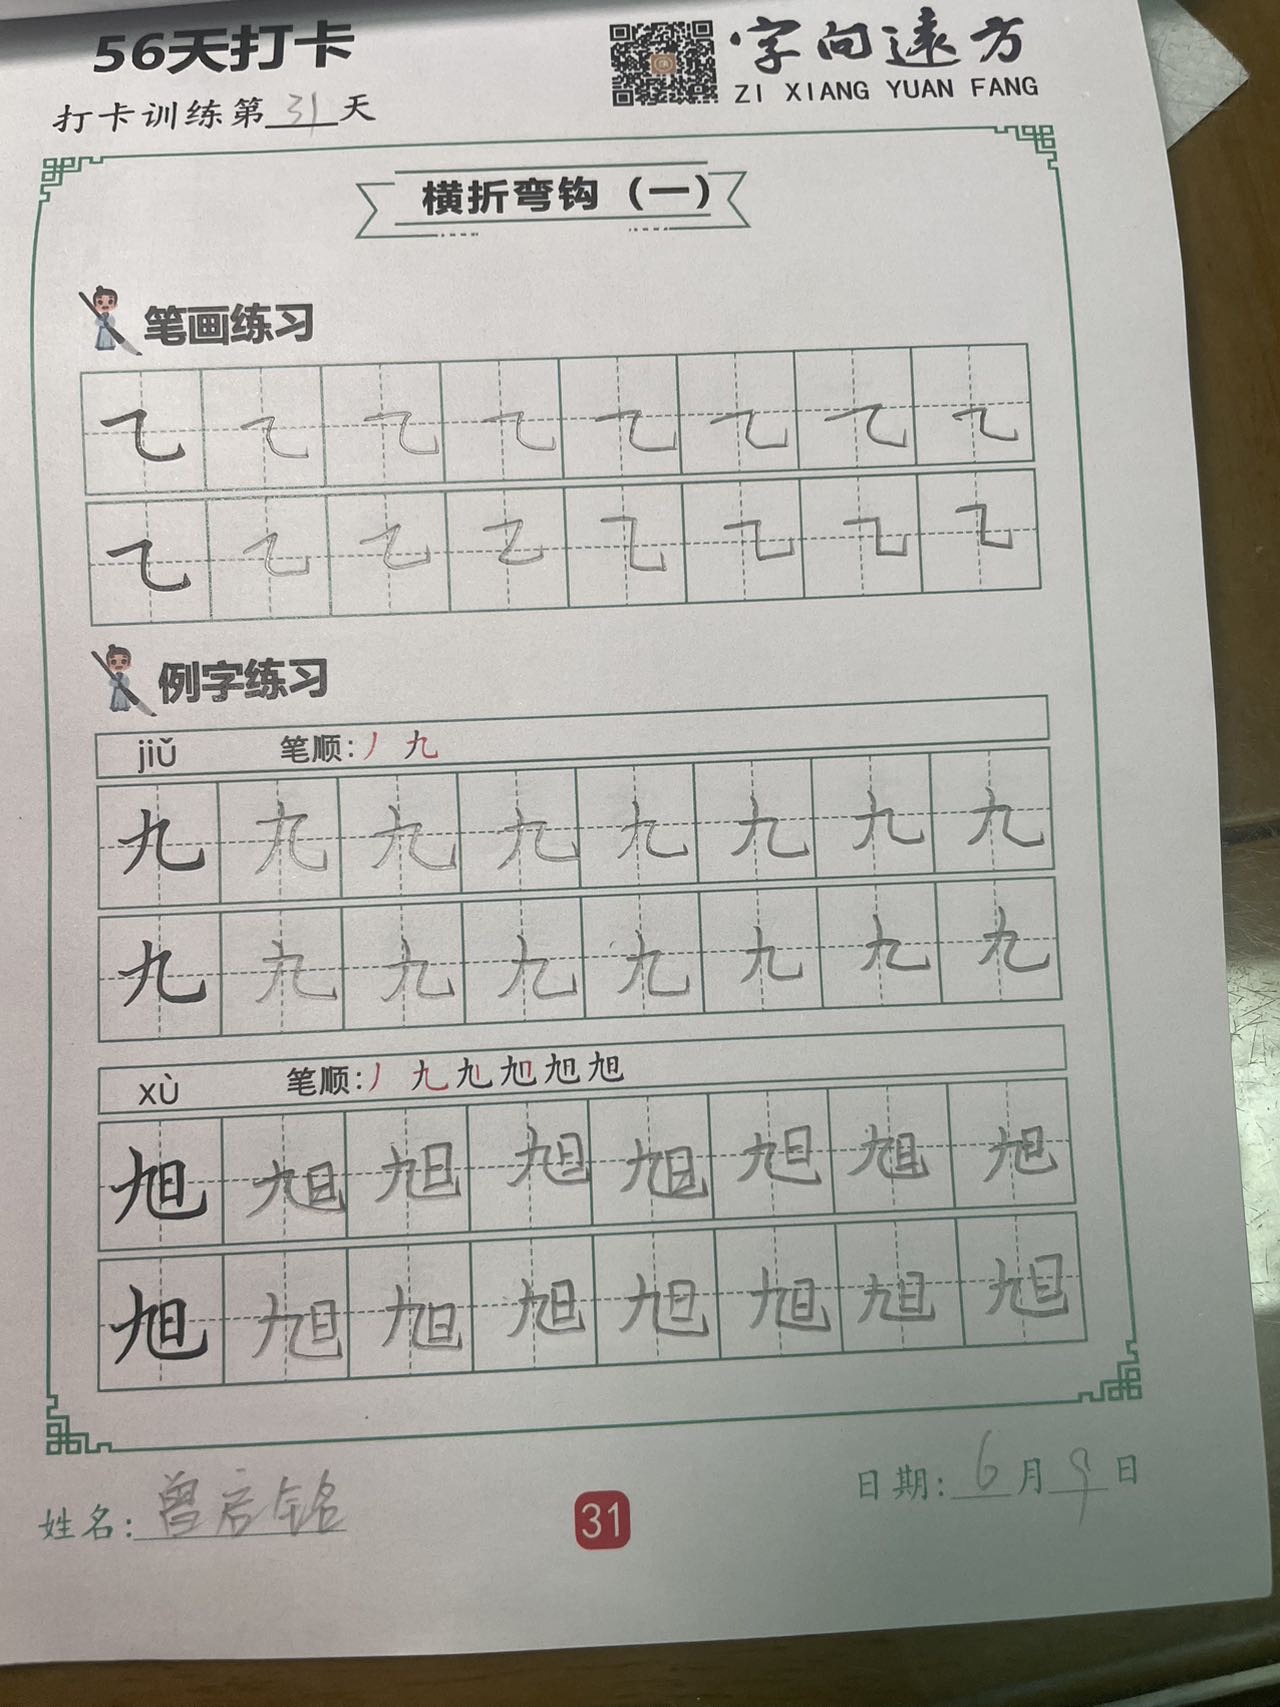 56天打卡
字向远方
ZI XIANG YUAN FANG
打卡训练第31天
横折弯钩（一）
笔画练习
乙 乙 乙 乙 乙 乙 乙 乙
乙 乙 乙 乙 乙 乙 乙 乙
例字练习
jiǔ 笔顺:丿 九
九 九 九 九 九 九 九 九
九 九 九 九 九 九 九 九
xù 笔顺:丿 九 旭 旭 旭 旭
旭 旭 旭 旭 旭 旭 旭 旭
旭 旭 旭 旭 旭 旭 旭 旭
姓名:曾启铭
31
日期:6月9日